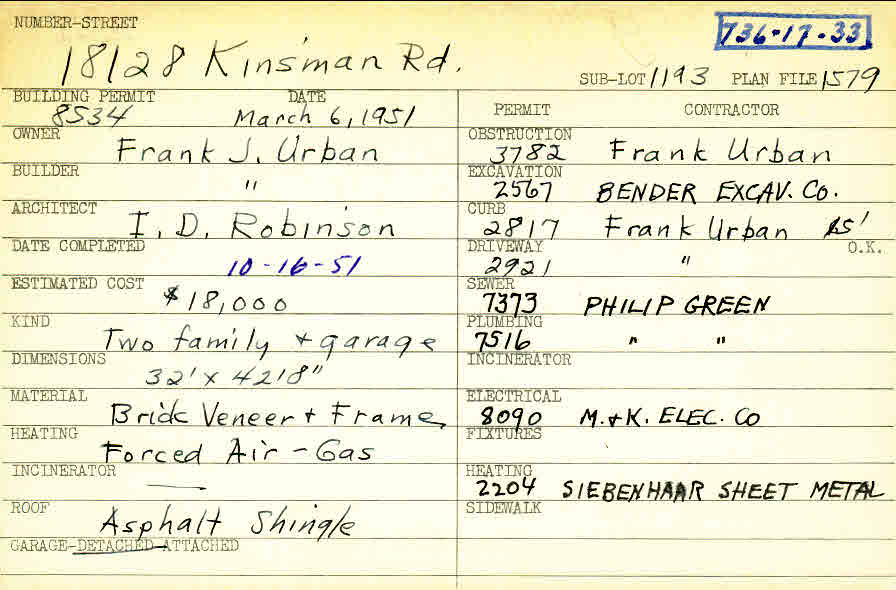 NUMBER-STREET
736-17-33
18128 Kinsman Rd.
SUB-LOT 1193 PLAN FILE 1579
BUILDING PERMIT DATE
8534 March 6, 1951
OWNER
Frank J. Urban
BUILDER
"
ARCHITECT
I. D. Robinson
DATE COMPLETED
10-16-51
ESTIMATED COST
$18,000
KIND
Two family + garage
DIMENSIONS
32' x 42'8"
MATERIAL
Brick Veneer + Frame
HEATING
Forced Air - Gas
INCINERATOR
—
ROOF
Asphalt Shingle
GARAGE-DETACHED-ATTACHED
PERMIT CONTRACTOR
OBSTRUCTION
3782 Frank Urban
EXCAVATION
2567 BENDER EXCAV. CO.
CURB
2817 Frank Urban 15'
DRIVEWAY O.K.
2921 "
SEWER
7373 PHILIP GREEN
PLUMBING
7516 " "
INCINERATOR
ELECTRICAL
8090 M. + K. ELEC. CO
FIXTURES
HEATING
2204 SIEBENHAAR SHEET METAL
SIDEWALK